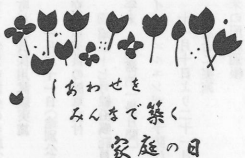 しあわせを
みんなで築く
家庭の日